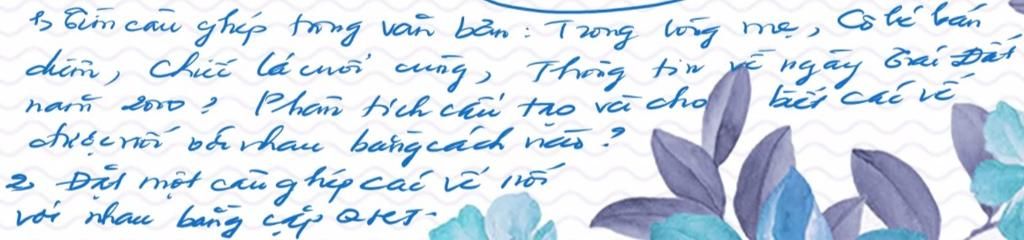 1, Tìm câu ghép trong văn bản: Trong lòng mẹ, Cô bé bán
diêm, Chiếc lá cuối cùng, Thông tin về ngày Trái Đất
năm 2000? Phân tích cấu tạo và cho biết các vế
được nối với nhau bằng cách nào?
2, Đặt một câu ghép các vế nối
với nhau bằng cặp QHT.